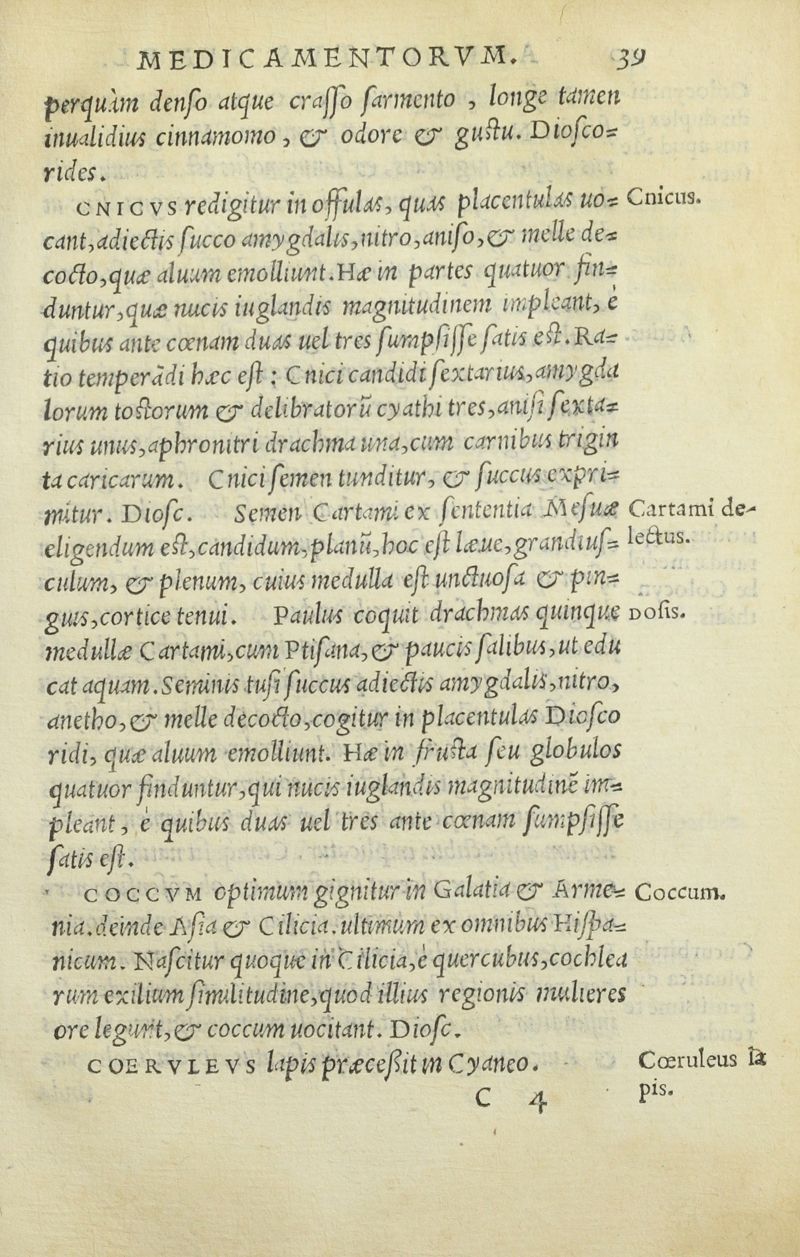 MEDICAMENTORVM. 39
perquàm denso atque crasso sarmento , longe tamen
inualidius cinnamomo , & odore & gustu. Diosco=
rides.
CNICVS redigitur in offulas, quas placentulas uo= Cnicus.
cant, adiectis succo amygdalis, nitro, aniso, & melle de=
cocto, quæ aluum emolliunt. Hæ in partes quatuor fin=
duntur, quæ nucis iuglandis magnitudinem impleant, è
quibus ante cœnam duas uel tres sumpsisse satis est. Ra=
tio temperãdi hæc est : Cnici candidi sextarius, amygda
lorum tostorum & delibratorũ cyathi tres, anisi sexta=
rius unus, aphronitri drachma una, cum carnibus trigin
ta caricarum. Cnici semen tunditur, & succus expri=
mitur. Diosc. Semen Cartami ex sententia Mesuæ Cartami de-
eligendum est, candidum, planũ, hoc est læue, grandius= lectus.
culum, & plenum, cuius medulla est unctuosa & pin=
guis, cortice tenui. Paulus coquit drachmas quinque Dosis.
medullæ Cartami, cum Ptisana, & paucis salibus, ut edu
cat aquam. Seminis tusi succus adiectis amygdalis, nitro,
anetho, & melle decocto, cogitur in placentulas Diosco
ridi, quæ aluum emolliunt. Hæ in frusta seu globulos
quatuor finduntur, qui nucis iuglandis magnitudinẽ im=
pleant, è quibus duas uel tres ante cœnam sumpsisse
satis est.
COCCVM optimum gignitur in Galatia & Arme= Coccum.
nia. deinde Asia & Cilicia. ultimum ex omnibus Hispa=
nicum. Nascitur quoque in Cilicia, è quercubus, cochlea
rum exilium similitudine, quod illius regionis mulieres
ore legunt, & coccum uocitant. Diosc.
COERVLEVS lapis præcessit in Cyaneo. Cœruleus la
C 4 pis.